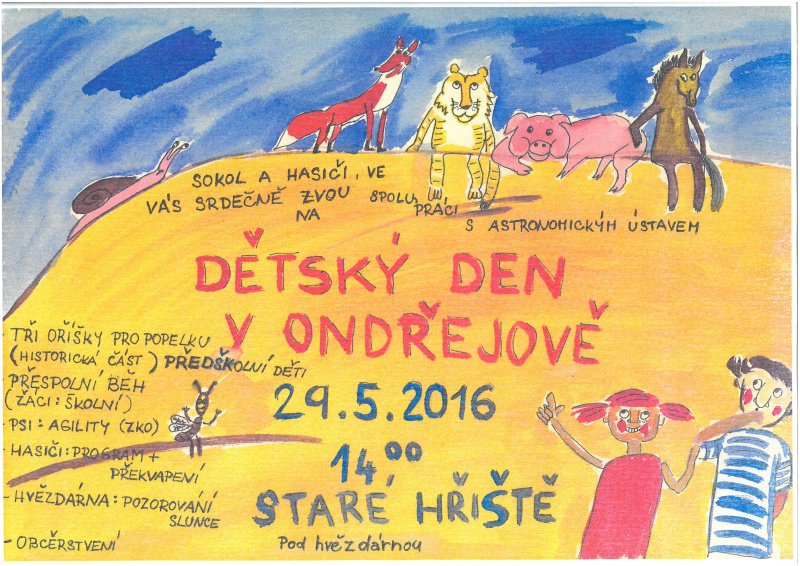 SOKOL A HASIČI, VE SPOLUPRÁCI S ASTRONOMICKÝM ÚSTAVEM
VÁS SRDEČNĚ ZVOU NA
DĚTSKÝ DEN
V ONDŘEJOVĚ
29.5.2016
14⁰⁰
STARÉ HŘIŠTĚ
Pod hvězdárnou
- TŘI OŘÍŠKY PRO POPELKU
(HISTORICKÁ ČÁST) PŘEDŠKOLNÍ DĚTI
PŘESPOLNÍ BĚH
(ŽÁCI: ŠKOLNÍ)
- PSI: AGILITY (ZKO)
- HASIČI: PROGRAM +
PŘEKVAPENÍ
- HVĚZDÁRNA: POZOROVÁNÍ
SLUNCE
- OBČERSTVENÍ